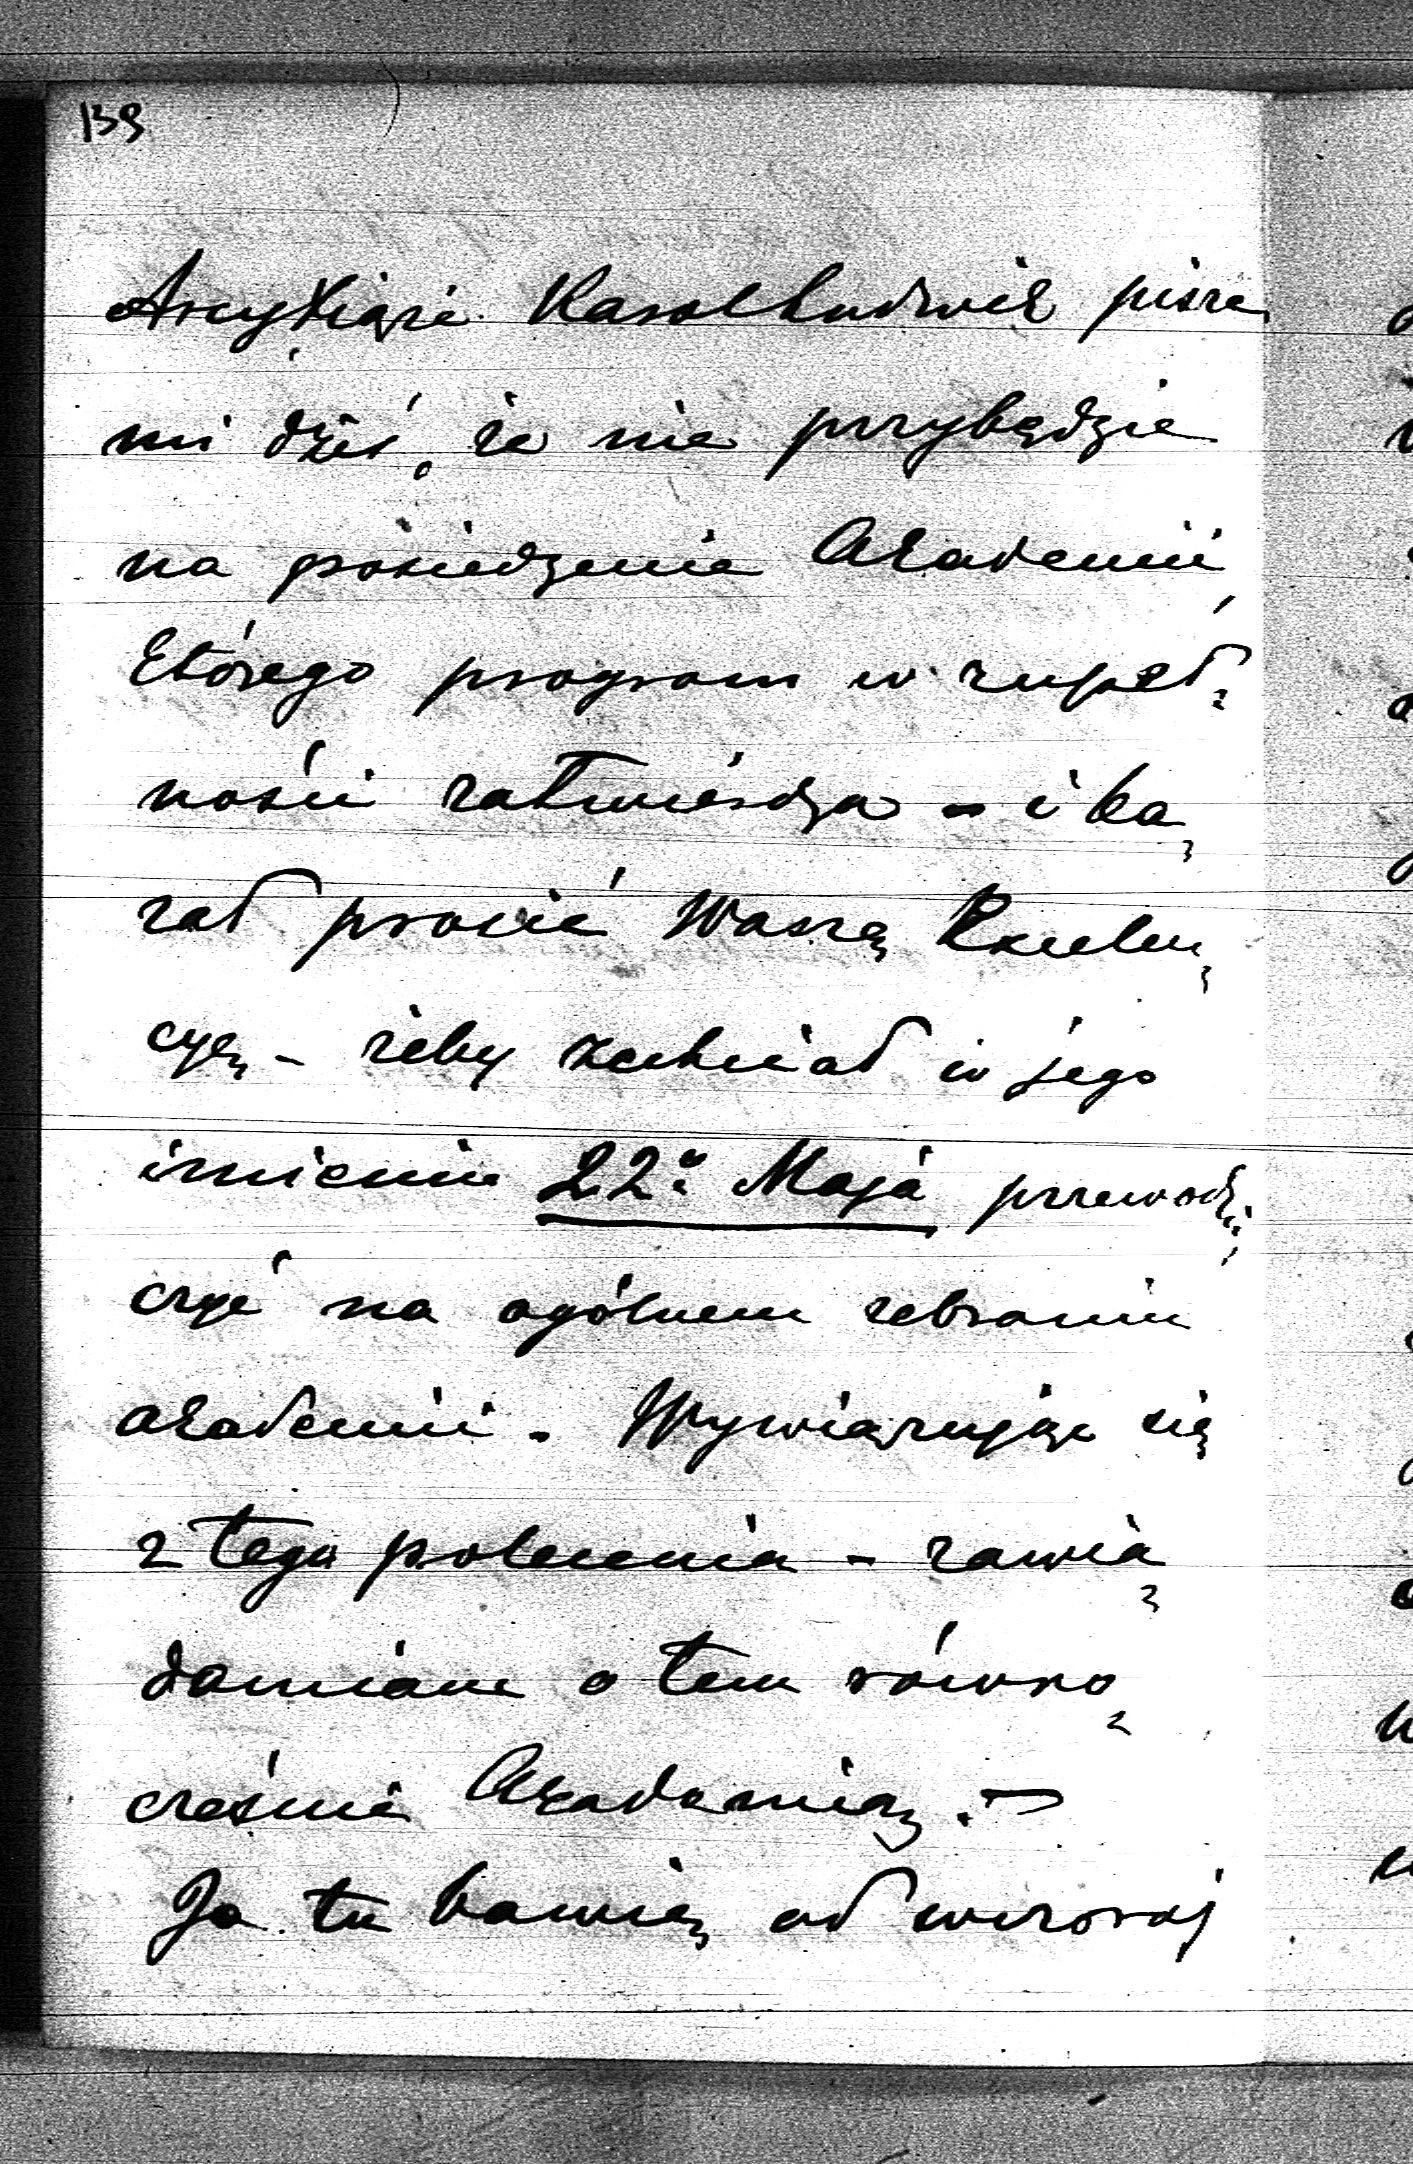 139
Arcyxiąże Karol Ludwik pisze
mi dziś, że nie przybędzie
na posiedzenie Akademii
którego program w zupeł-
ności zatwierdza - i ka-
zał prosić Waszą Excelen-
cyę - żeby zechciał w jego
imieniu 22o Maja przewodni-
czyć na ogólnem zebraniu
akademii. Wywiązując się
z tego polecenia - zawia-
damiam o tem równo-
cześnie Akademię. -
Ja tu bawię od wczoraj